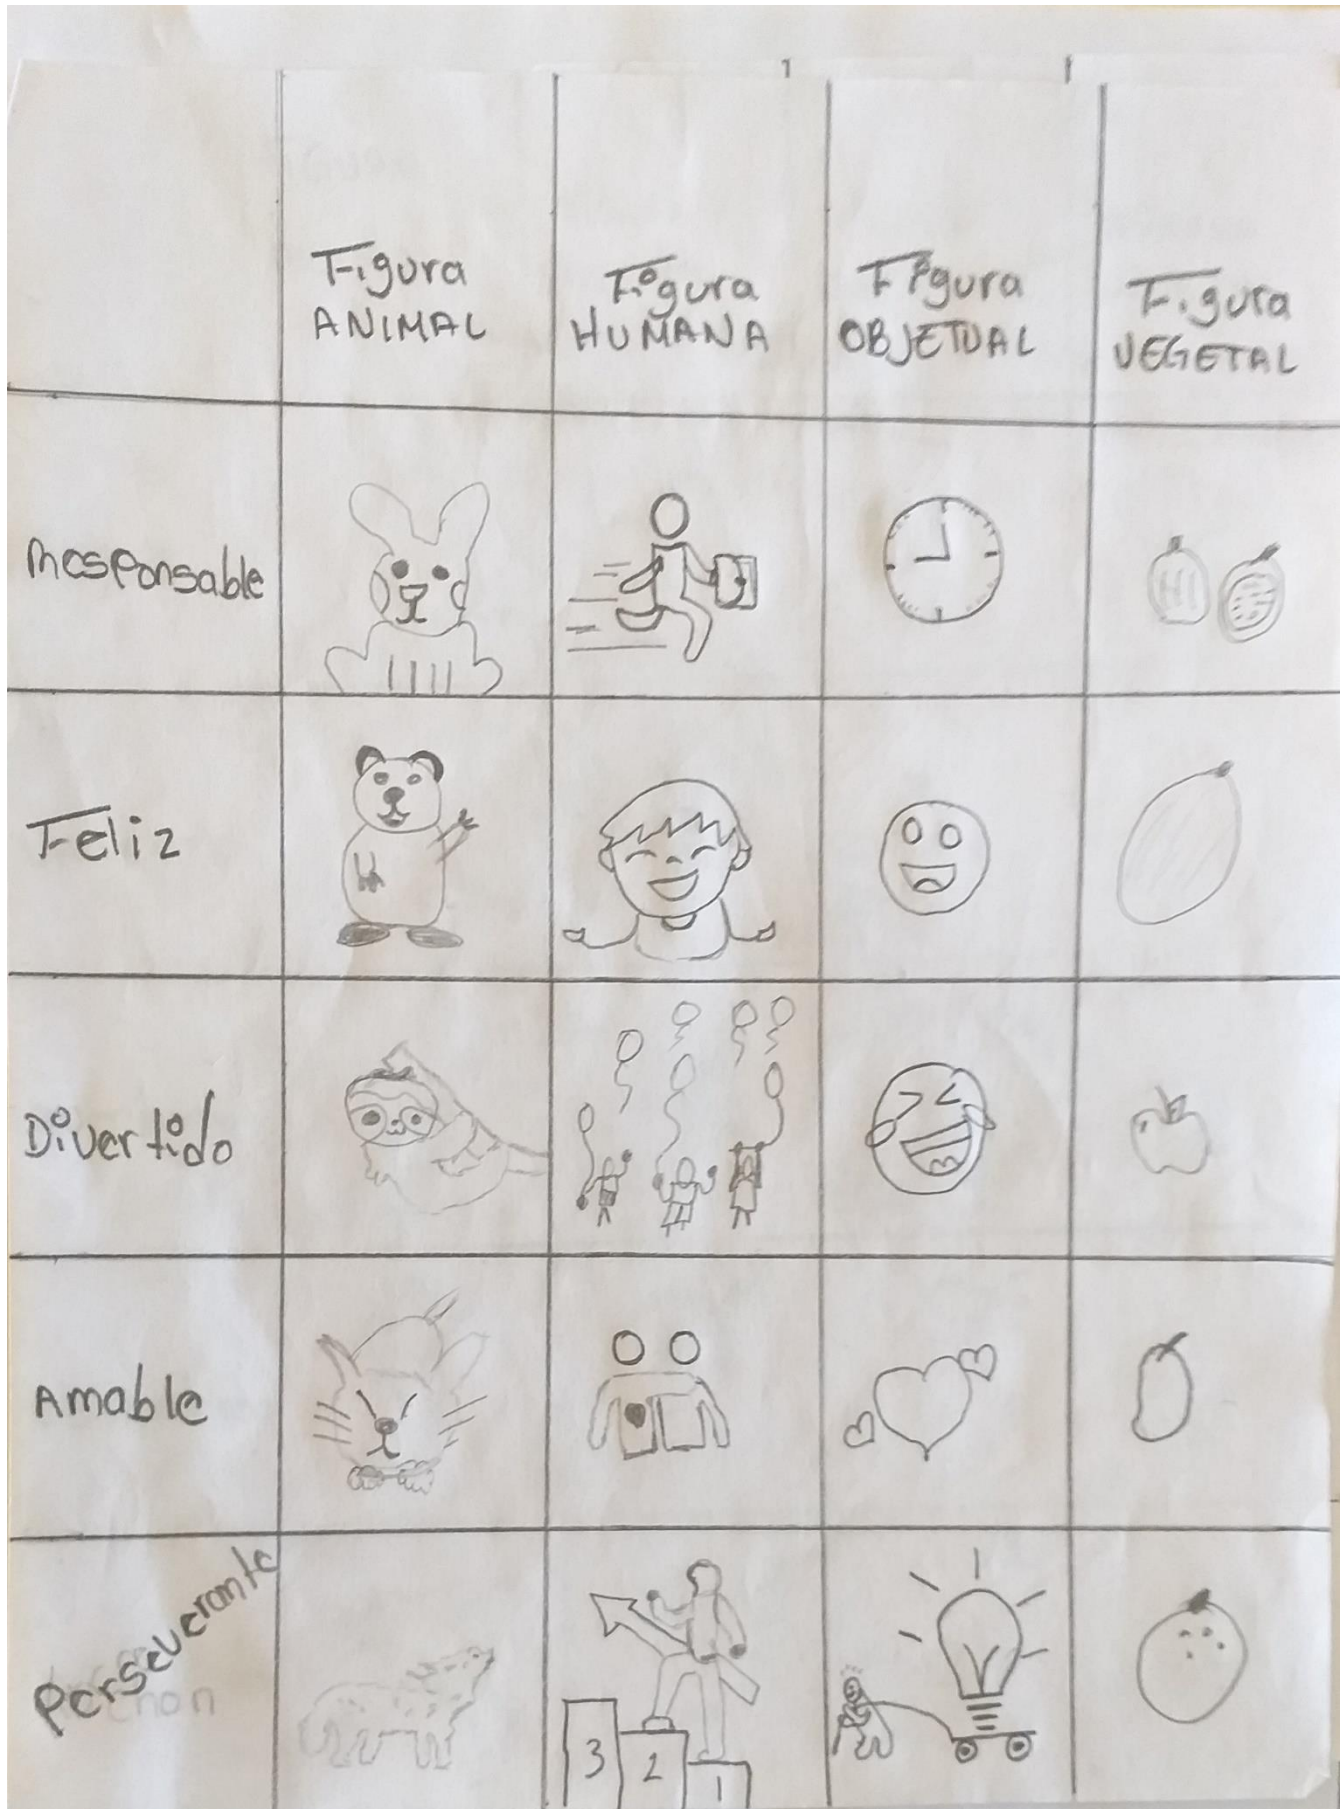 1
Figura
ANIMAL
Figura
HUMANA
Figura
OBJETUAL
Figura
VEGETAL
Responsable
Feliz
Divertido
Amable
Perseverante
3
2
1